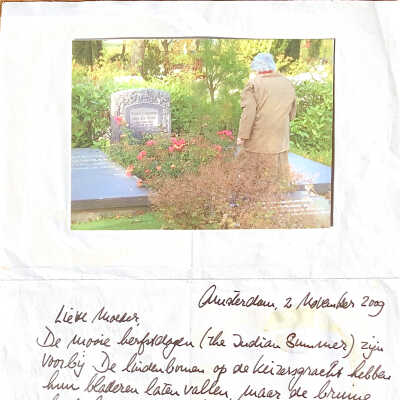 Amsterdam, 2 November 2009
Lieve Moeder,
De mooie herfstdagen (the Indian Summer) zijn
voorbij. De lindenbomen op de Keizersgracht hebben
hun bladeren laten vallen, maar de bruine